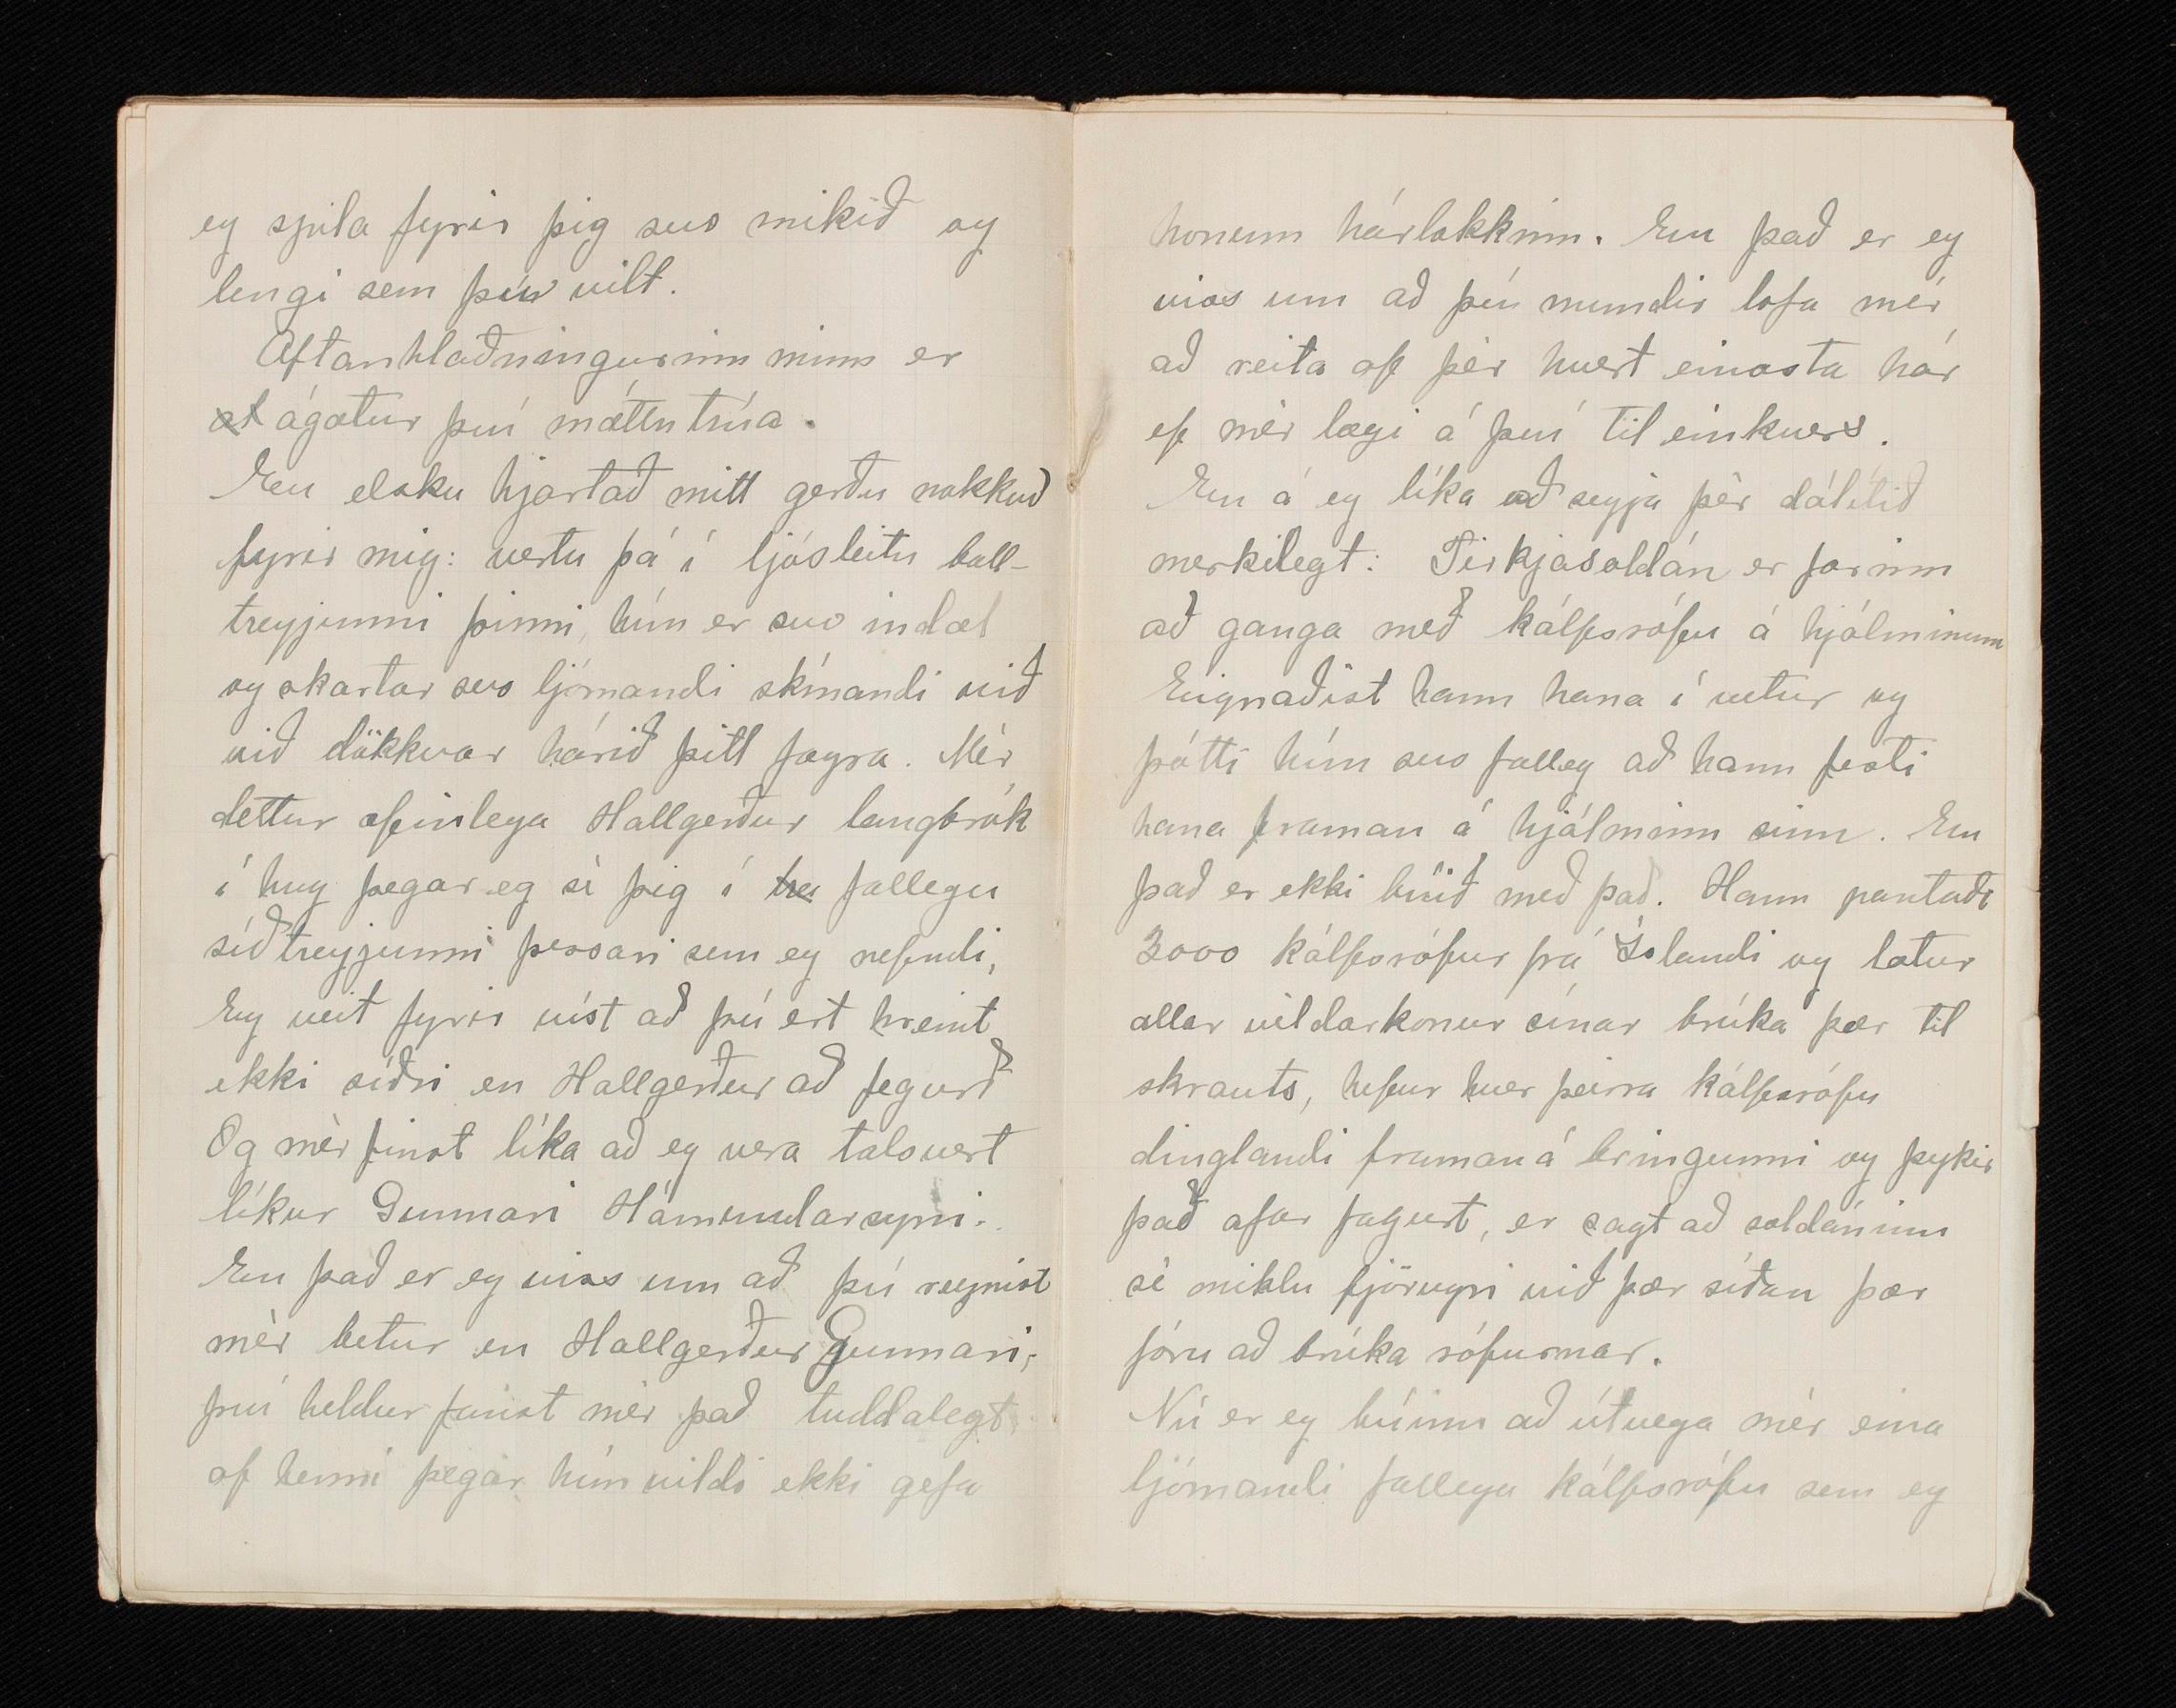 eg spila fyrir þig svo mikið og
lengi sem þú vilt.
Aftanhlaðningurinn minn er
at ágætur því máttu trúa.
En elsku hjartað mitt gerðu nokkuð
fyrir mig: vertu þá í ljósleitu ball-
treyjunni þinni, hún er svo indæl
og skartar svo ljómandi skínandi við
við dökkvar hárið þitt fagra. Mér
dettur æfinlega Hallgerður langbrók
í hug þegar eg sé þig í tre fallegu
síðtreyjunni þessari sem eg nefndi,
Eg veit fyrir víst að þú ert hreint
ekki síðri en Hallgerður að fegurð
Og mér finst líka að eg vera talsvert
líkur Gunnari Hámundarsyni.
En það er eg viss um að þú reynist
mér betur en Hallgerður Gunnari,
því heldur finst mér það tuddalegt
af henni þegar hún vildi ekki gefa
honum hárlokkinn. En það er eg
viss um að þú mundir lofa mér
að reita af þér hvert einasta hár
ef mér lægi á því til einkvers.
En á eg líka að segja þér dálítið
merkilegt: Tirkjasoldán er farinn
að ganga með kálfsrófu á hjálminum
Eignaðist hann hana í vetur og
þótti hún svo falleg að hann festi
hana framan á hjálminn sinn. En
það er ekki búið með það. Hann pantaði
3000 kálfsrófur frá Íslandi og lætur
allar vildarkonur sínar brúka þær til
skrauts, hefur hver þeirra kálfsrófu
dinglandi framaná bringunni og þykir
það afar fagurt, er sagt að soldáninn
sé miklu fjörugri við þær síðan þær
fóru að brúka rófurnar.
Nú er eg búinn að útvega mér eina
ljómandi fallega kálfsrófu sem eg